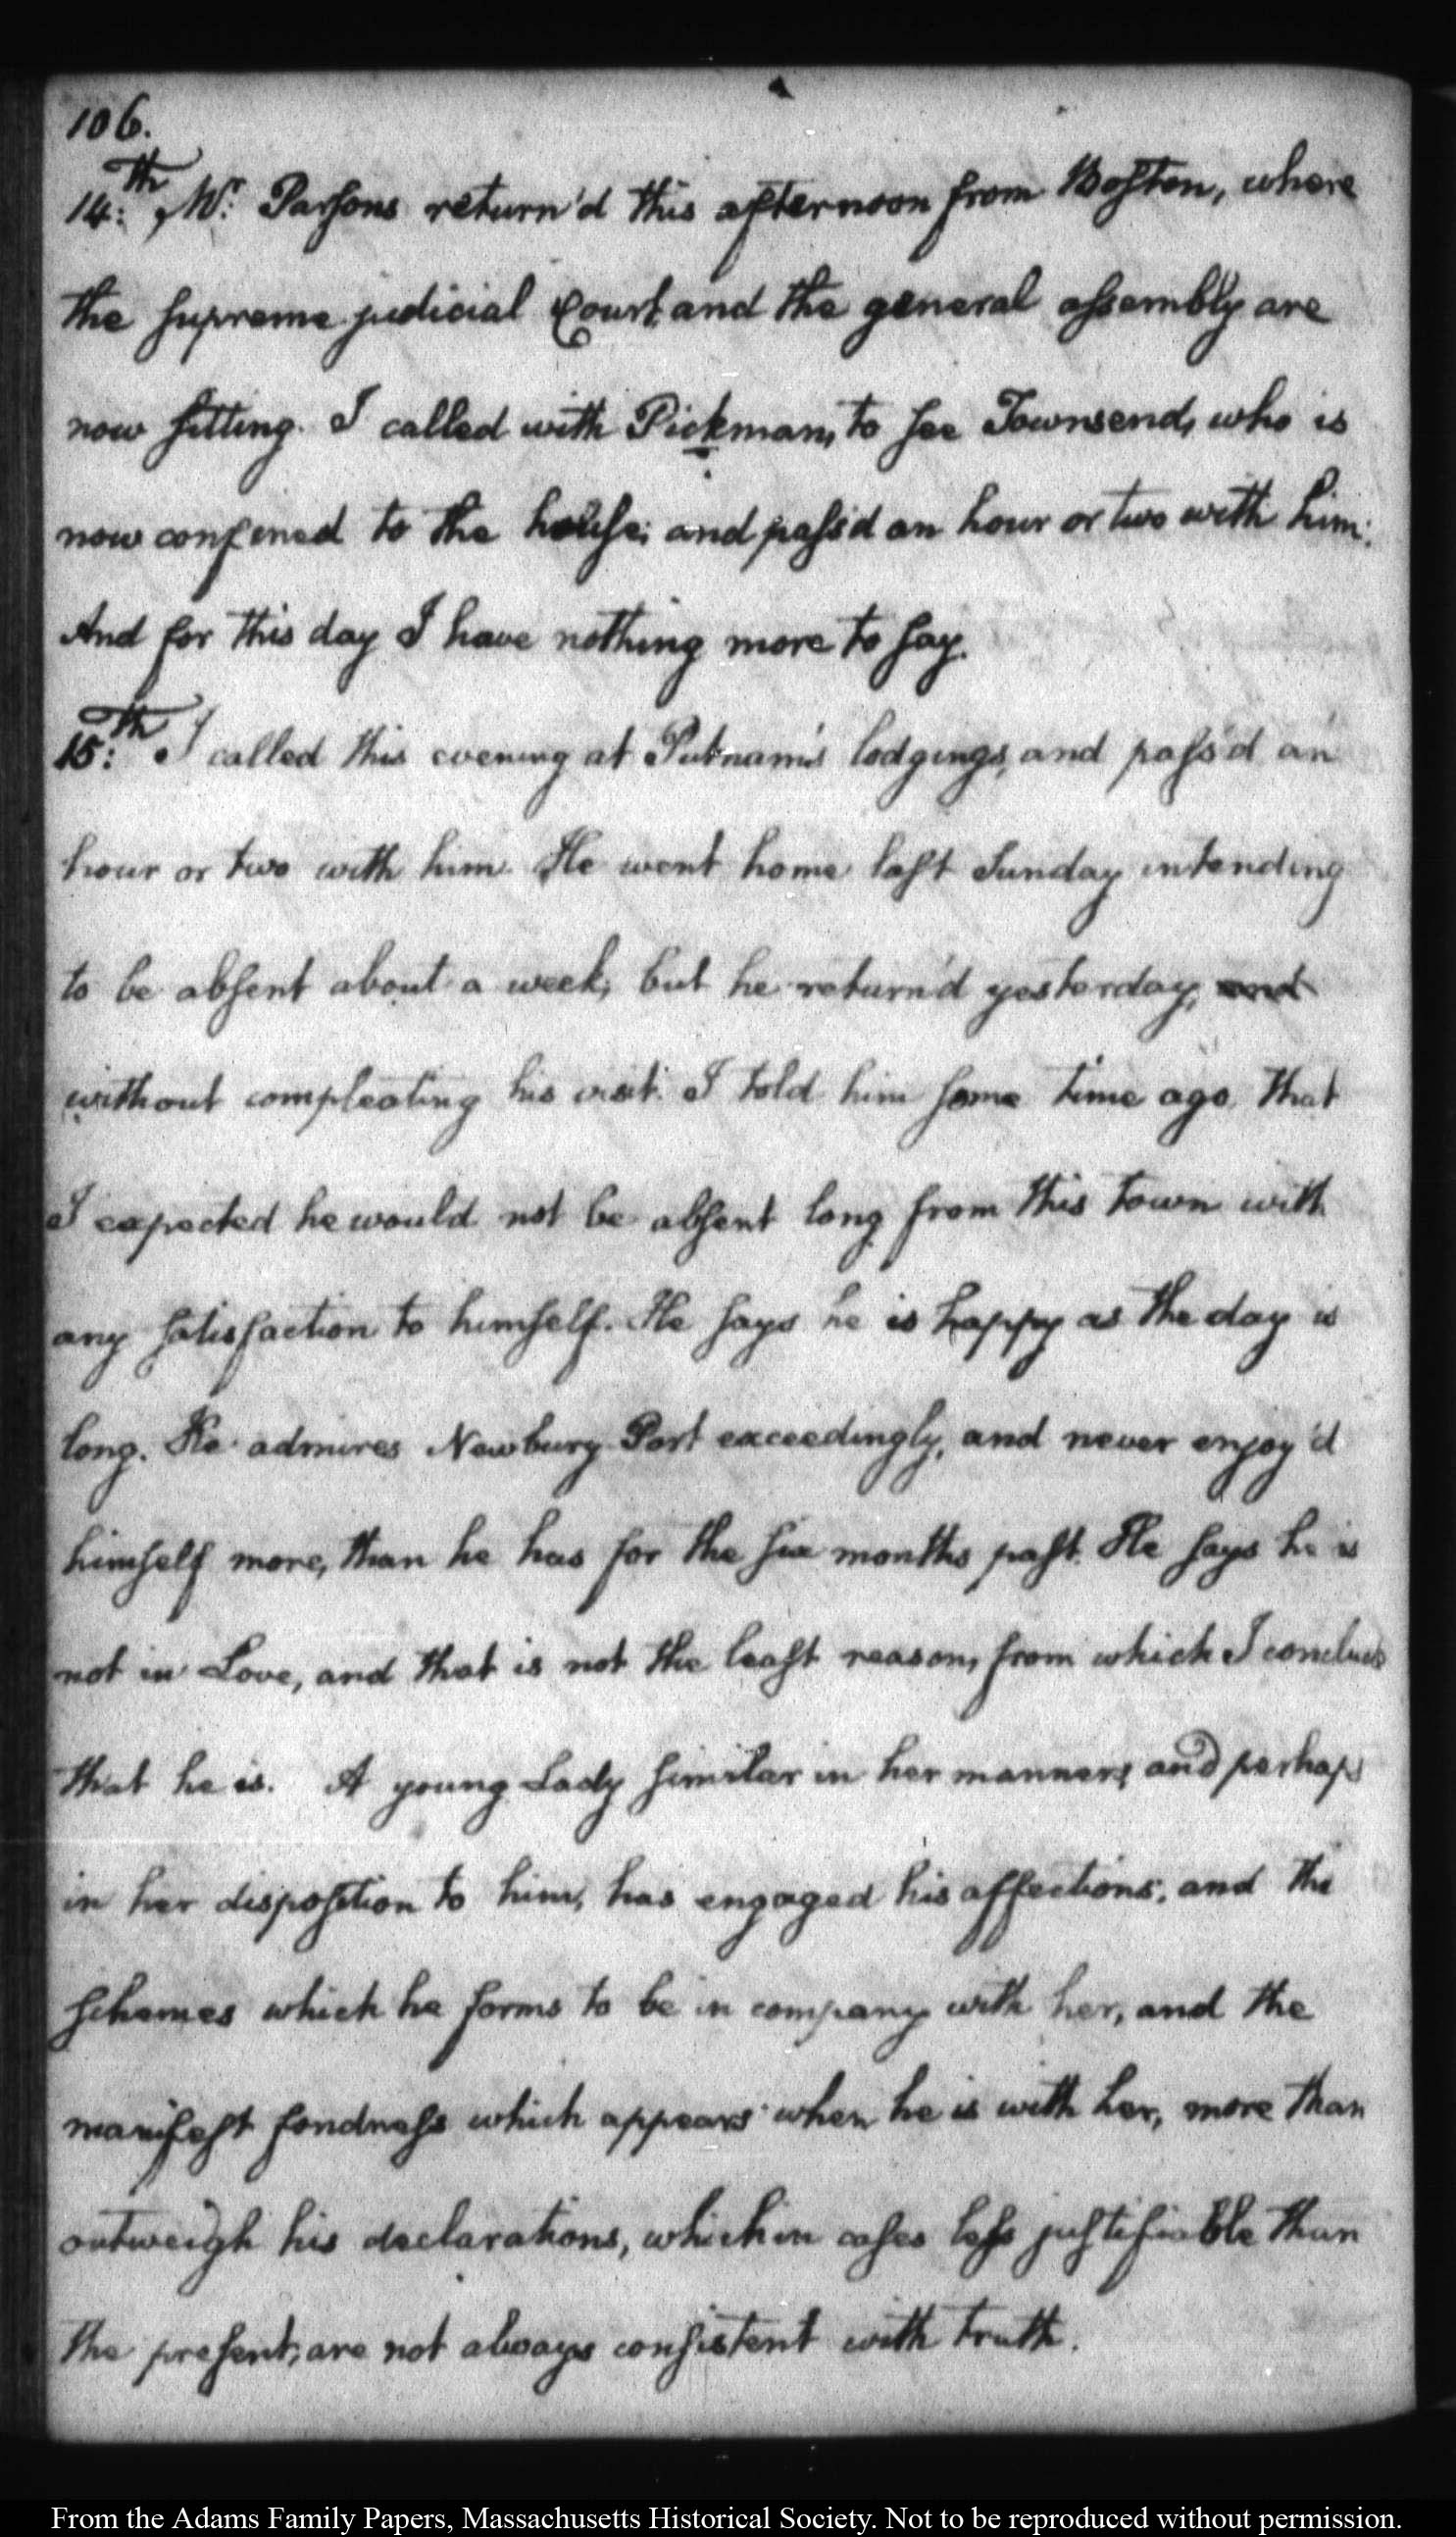 106.
14:th Mr: Parsons return'd this afternoon from Boston, where
the supreme judicial Court, and the general assembly are
now sitting. I called with Pickman, to see Townsend, who is
now confined to the house; and pass'd an hour or two with him:
And for this day I have nothing more to say.
15:th I called this evening at Putnam's lodgings, and pass'd an
hour or two with him. He went home last Sunday intending
to be absent about a week; but he return'd yesterday, and
without compleating his visit. I told him some time ago, that
I expected he would not be absent long from this town with
any satisfaction to himself. He says he is happy as the day is
long. He admires Newbury-Port exceedingly, and never enjoy'd
himself more, than he has for the six months past. He says he is
not in Love, and that is not the least reason, from which I conclude
that he is. A young Lady similar in her manners, and perhaps
in her disposition to him, has engaged his affections; and the
schemes which he forms to be in company with her, and the
manifest fondness which appears when he is with her, more than
outweigh his declarations, which in cases less justifiable than
the present, are not always consistent with truth.
From the Adams Family Papers, Massachusetts Historical Society. Not to be reproduced without permission.